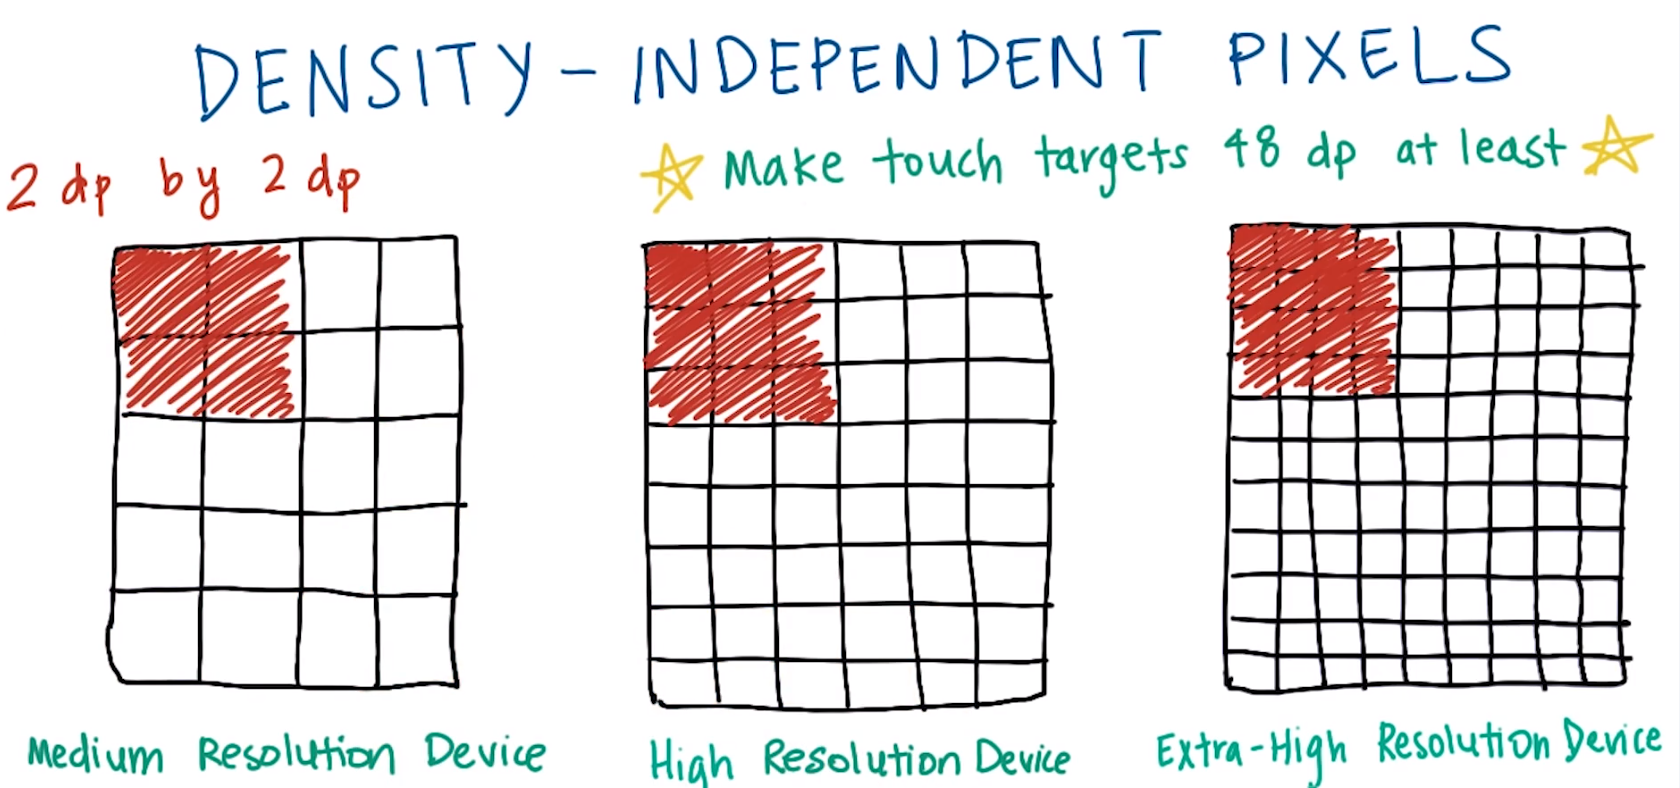 DENSITY - INDEPENDENT PIXELS
2 dp by 2 dp
Make touch targets 48 dp at least
Medium Resolution Device
High Resolution Device
Extra-High Resolution Device